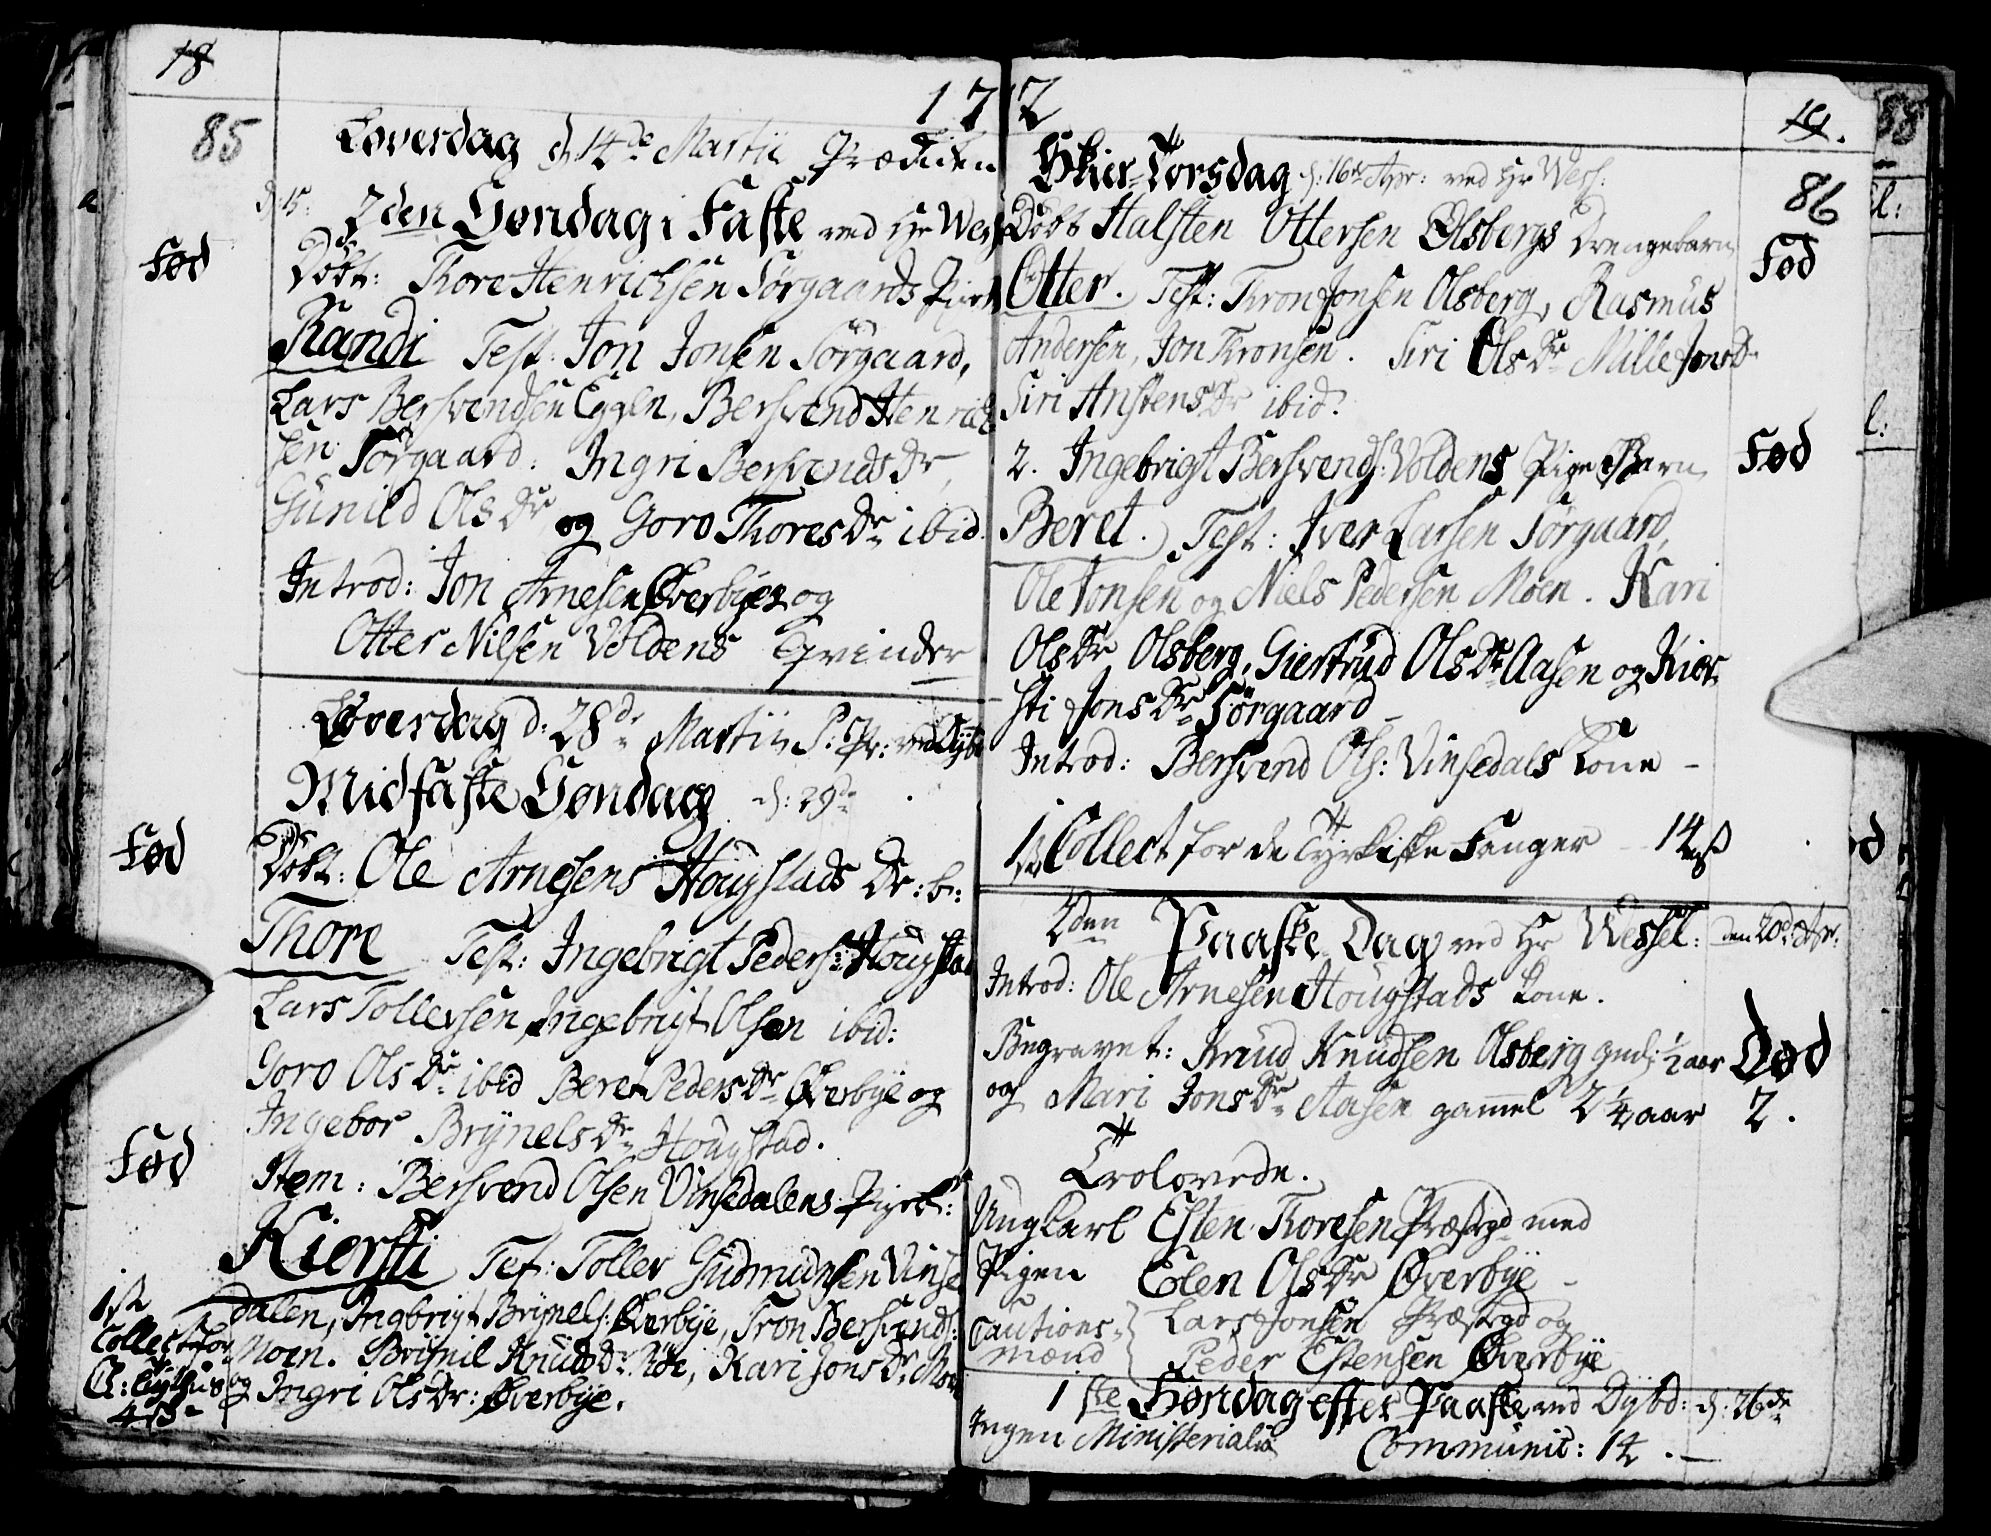 18
85
1772
Løverdag d: 14de Martii Prædiken
d: 15: 2den Søndag i Faste ved Hr Wess
Fød
Døbt: Thore Henrichsen Sørgaards Pigeb
Randi Test: Jon Jonsen Sørgaard,
Lars Bersvendsen Eggen, Bersvend Henrich
sen Sørgaard. Ingri Bersvends Dr,
Gunild Ols Dr og Goro Thores Dr ibid.
Introd: Jon Arnesen Øverbyes og
Otter Nilsen Voldens Qvinder
Løverdag d: 28de Martii P: Pr: ved Dybd
Midfaste Søndag d: 29de
Fød
Døbt: Ole Arnesens Hougstads Dr: b:
Thore Test: Ingebrigt Peders: Hougstad
Lars Tollersen, Ingebrigt Olsen ibid:
Goro Ols Dr ibid Beret Peders Dr Øverbye og
Ingebor Brynels Dr Hougstad.
Fød
Item: Bersvend Olsen Vinsedalens Pigeb:
Kiersti Test: Toller Gudmundsen Vinse
dalen, Ingbrigt Brynels: Øverbye, Tron Bersvends:
Moen. Brynil Knuds Dr Kari Jons Dr Moen
og Ingri Ols Dr: Øverbye.
1ste
Collect for
4 ß
19.
86
Skier-Torsdag d: 16de Apr: ved Hr Wess:
Døbt Halsten Ottersen Olsbergs Drengebarn
Fød
Otter. Test: Tron Jonsen Olsberg, Rasmus
Andersen, Jon Tronsen. Siri Ols Dr Mille Jons Dr
Siri Anstens Dr ibid.
2. Ingebrigt Bersvends: Voldens Pige Barn
Fød
Beret. Test: Iver Larsen Sørgaard,
Ole Jonsen og Niels Pedersen Moen. Kari
Ols Dr Olsberg, Giertrud Ols Dr Aasen og Kier
sti Jons Dr Sørgaard
Introd: Bersvend Ols: Vinsedals Kone
1ste Collect for de Tyrkiske Fanger 14 ß
2den Paaske Dag ved Hr Wessel: den 20de Apr:
Introd: Ole Arnesen Hougstads Kone.
Begravet: Knud Knudsen Olsberg gml: 1/2 aar
Død
og Mari Jons Dr Aasen gammel 2 1/4 aar
2.
Trolovede.
Ungkarl Esten Thoresen Præstgd med
Pigen Eden Ols Dr Øverbye
Cautions- Lars Jonsen Præstgd og
mænd Peder Estensen Øverbye
1ste Søndag efter Paaske ved Dybd: d: 26de
Ingen Ministerialia Communic: 14.
88